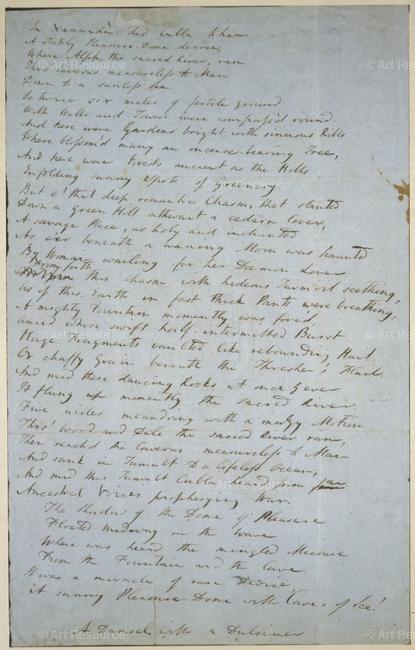 In Xannadù did Cubla Khan
A stately Pleasure-Dome decree;
Where Alph, the sacred River, ran
Thro' Caverns measureless to Man
Down to a sunless Sea.
So twice six miles of fertile ground
With Walls and Towers were compass'd round:
And here were Gardens bright with sinuous Rills
Where blossom'd many an incense-bearing Tree,
And here were Forests ancient as the Hills
Enfolding sunny Spots of Greenery.
But o! that deep romantic Chasm, that slanted
Down a green Hill athwart a cedarn Cover,
A savage Place, as holy and inchanted
As e'er beneath a waning Moon was haunted
By Woman wailing for her Daemon Lover:
From forth
this Chasm with hideous Turmoil seething,
As if this Earth in fast thick Pants were breathing,
A mighty Fountain momently was forc'd,
Amid whose swift half-intermitted Burst
Huge Fragments vaulted like rebounding Hail,
Or chaffy Grain beneath the Thresher's Flail.
And mid these dancing Rocks at once & ever
It flung up momently the sacred River.
Five miles meandring with a mazy Motion
Thro' Wood and Dale the sacred River ran,
Then reach'd the Caverns measureless to Man
And sank in Tumult to a lifeless Ocean;
And mid this Tumult Cubla heard from far
Ancestral Voices prophesying War.
The Shadow of the Dome of Pleasure
Floated midway on the Wave
Where was heard the mingled Measure
From the Fountain and the Cave.
It was a miracle of rare Device,
A sunny Pleasure-Dome with Caves of Ice!
A Damsel with a Dulcimer
© Art Resource